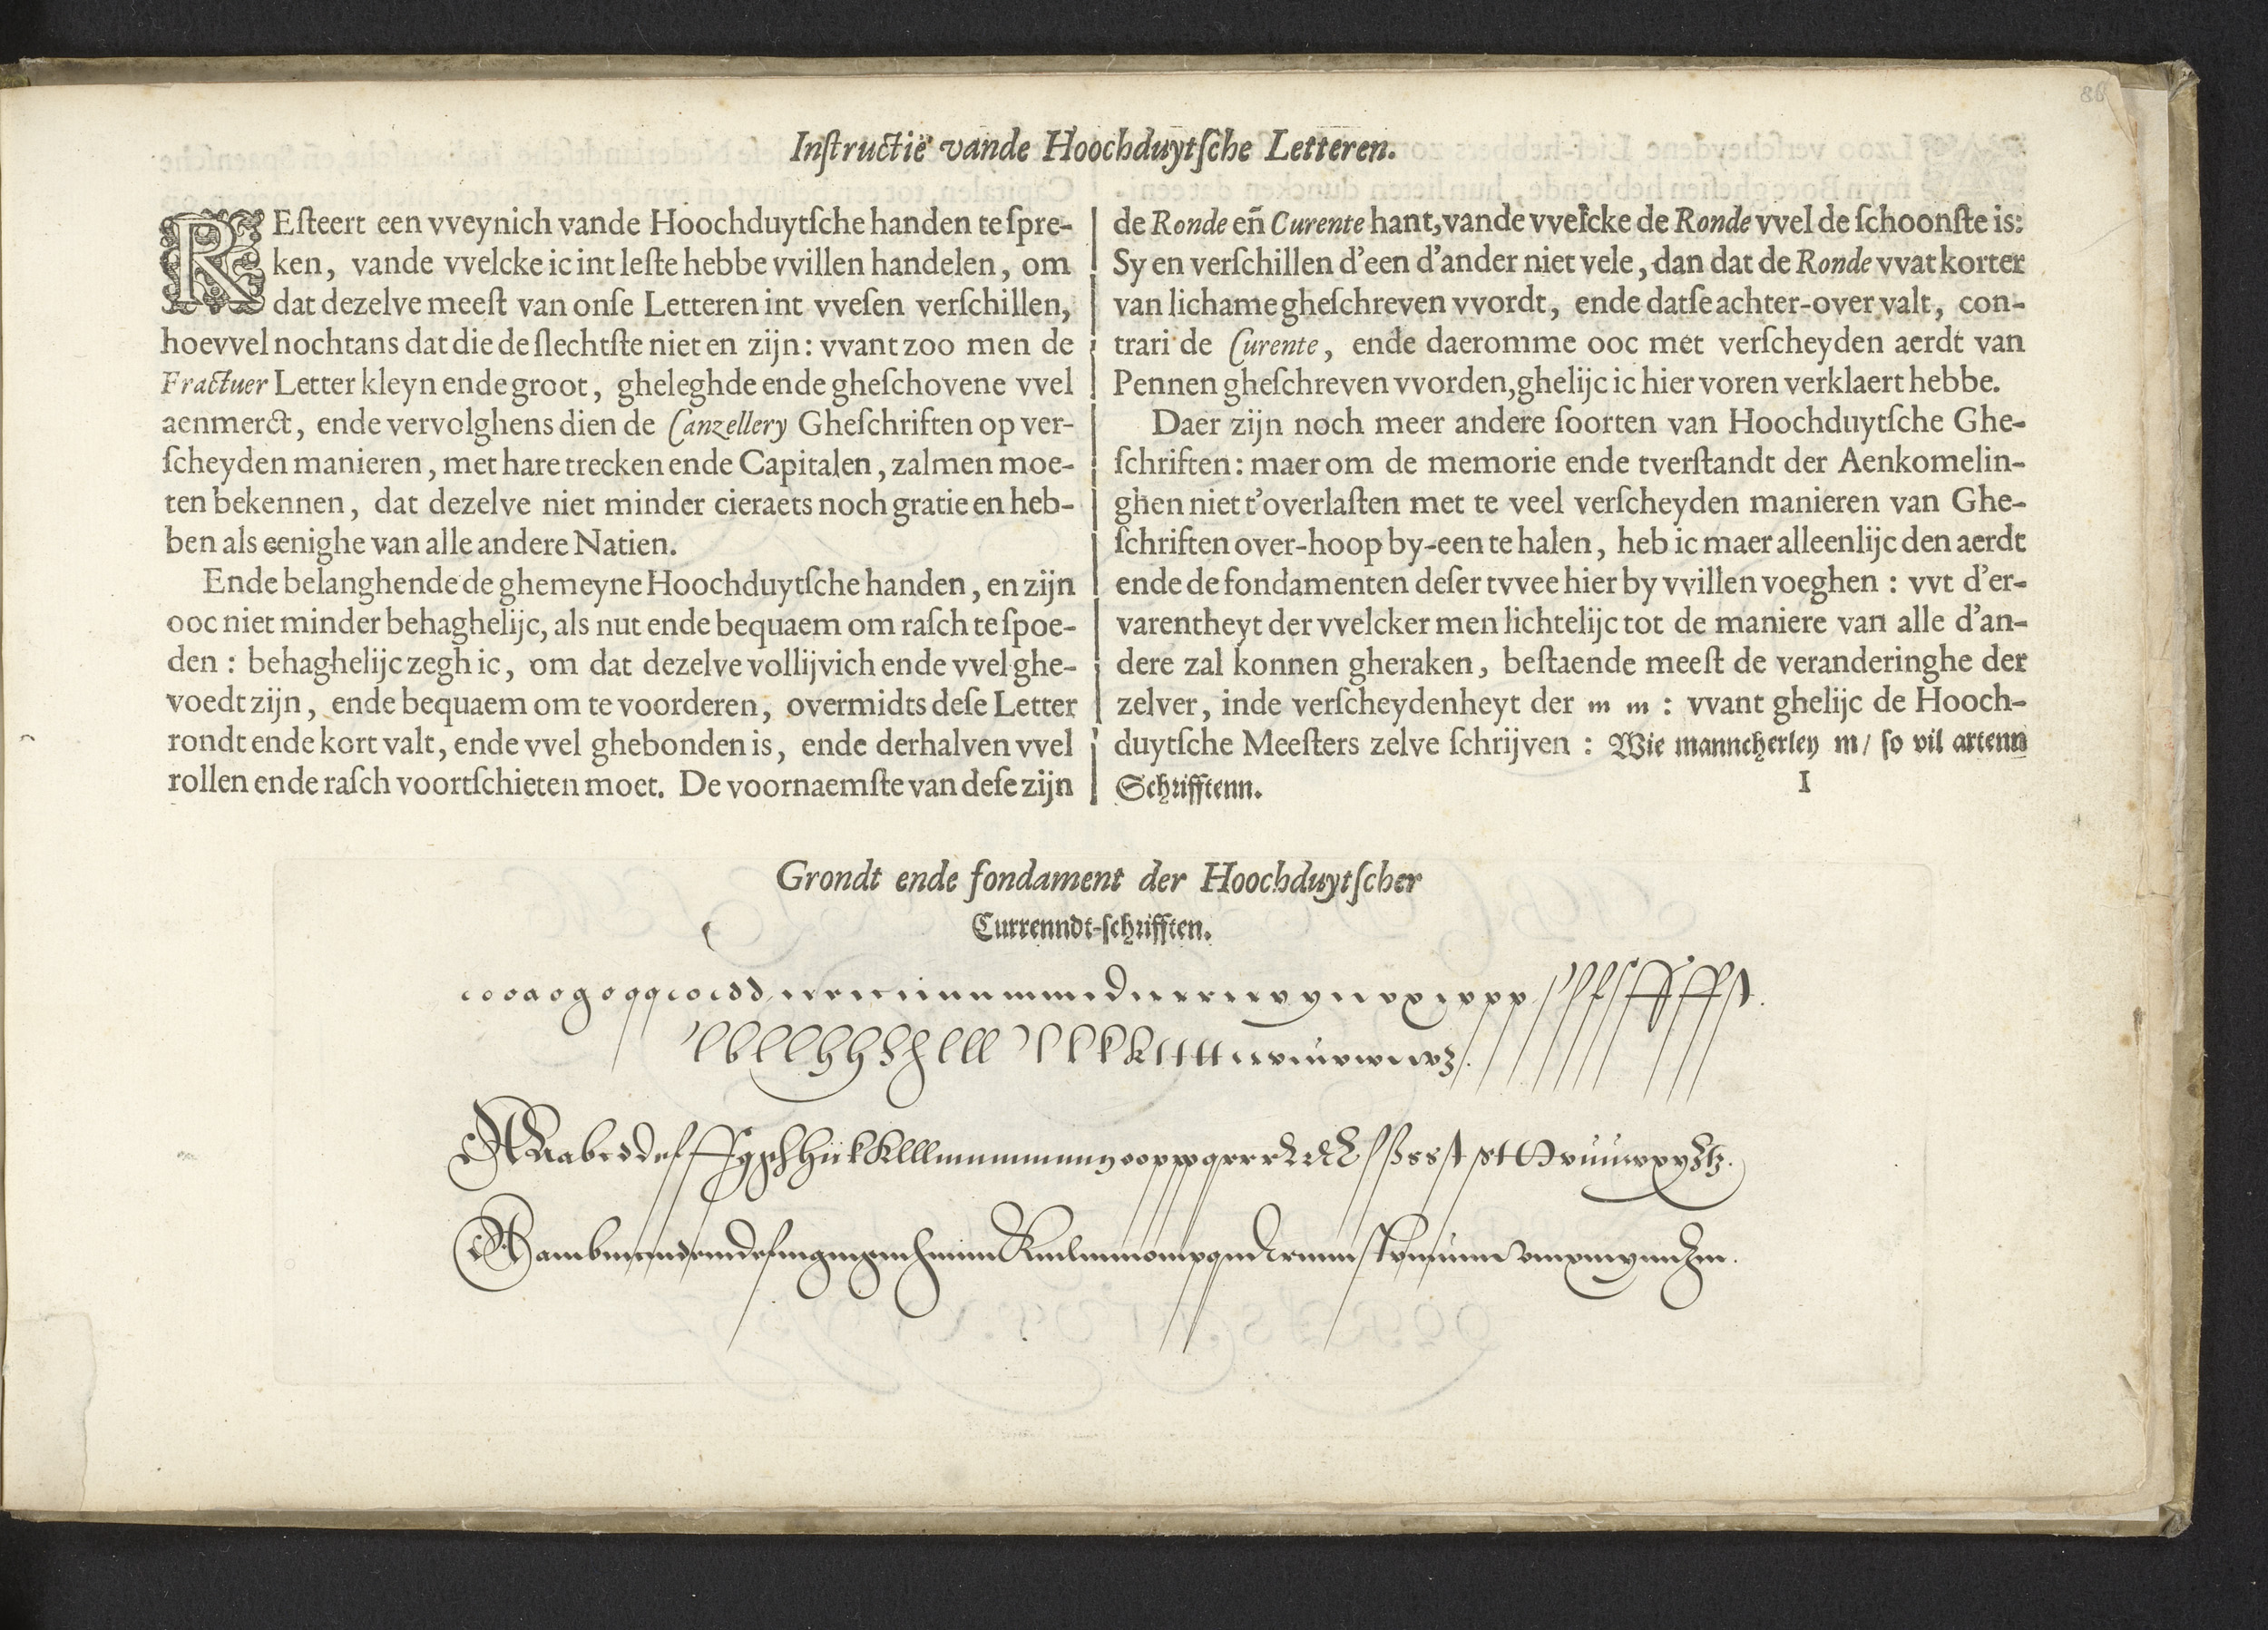 86
Inſtructië vande Hoochduytſche Letteren.
REſteert een vveynich vande Hoochduytſche handen te ſpre-
ken, vande vvelcke ic int leſte hebbe vvillen handelen, om
dat dezelve meeſt van onſe Letteren int vveſen verſchillen,
hoevvel nochtans dat die de ſlechtſte niet en zijn: vvant zoo men de
Fractuer Letter kleyn ende groot, gheleghde ende gheſchovene vvel
aenmerct, ende vervolghens dien de Canzellery Gheſchriften op ver-
ſcheyden manieren, met hare trecken ende Capitalen, zalmen moe-
ten bekennen, dat dezelve niet minder cieraets noch gratie en heb-
ben als eenighe van alle andere Natien.
Ende belanghende de ghemeyne Hoochduytſche handen, en zijn
ooc niet minder behaghelijc, als nut ende bequaem om raſch te ſpoe-
den: behaghelijc zegh ic, om dat dezelve vollijvich ende vvel ghe-
voedt zijn, ende bequaem om te voorderen, overmidts deſe Letter
rondt ende kort valt, ende vvel ghebonden is, ende derhalven vvel
rollen ende raſch voortſchieten moet. De voornaemſte van deſe zijn
de Ronde en̄ Curente hant, vande vvelcke de Ronde vvel de ſchoonſte is:
Sy en verſchillen d'een d'ander niet vele, dan dat de Ronde vvat korter
van lichame gheſchreven vvordt, ende datſe achter-over valt, con-
trari de Curente, ende daeromme ooc met verſcheyden aerdt van
Pennen gheſchreven vvorden, ghelijc ic hier voren verklaert hebbe.
Daer zijn noch meer andere ſoorten van Hoochduytſche Ghe-
ſchriften: maer om de memorie ende tverſtandt der Aenkomelin-
ghen niet t'overlaſten met te veel verſcheyden manieren van Ghe-
ſchriften over-hoop by-een te halen, heb ic maer alleenlijc den aerdt
ende de fondamenten deſer tvvee hier by vvillen voeghen: vvt d'er-
varentheyt der vvelcker men lichtelijc tot de maniere van alle d'an-
dere zal konnen gheraken, beſtaende meeſt de veranderinghe der
zelver, inde verſcheydenheyt der m m: vvant ghelijc de Hooch-
duytſche Meeſters zelve ſchrijven: Wie manncherley m/ ſo vil artenn
Schrifftenn.
I
Grondt ende fondament der Hoochduytſcher
Currenndt-ſchrifften.